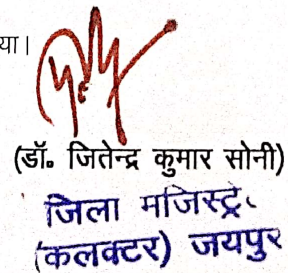 या।
(डॉ॰ जितेन्द्र कुमार सोनी)
जिला मजिस्ट्रे
(कलक्टर) जयपुर